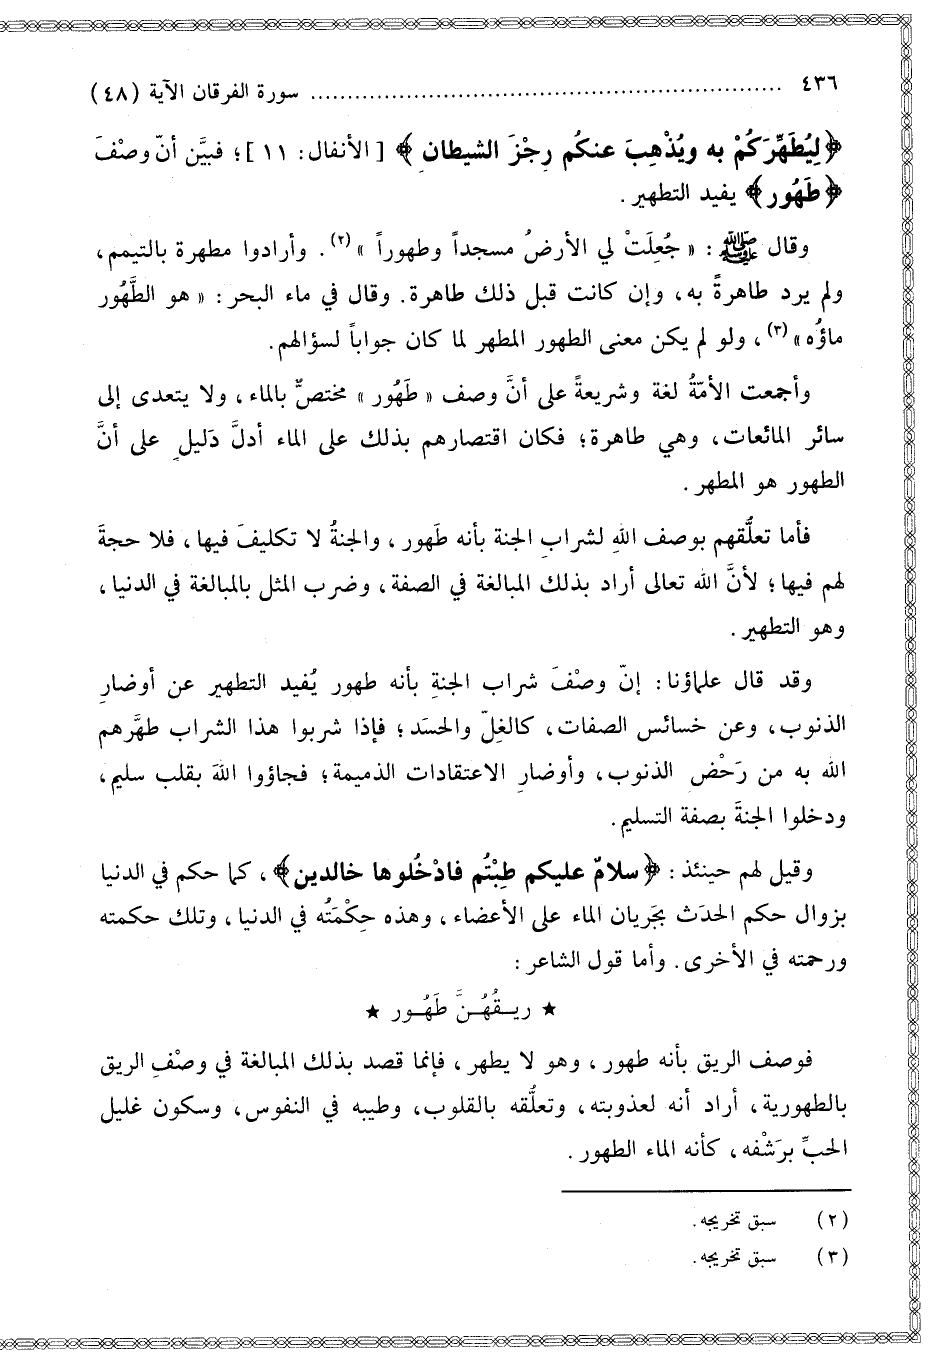 ٤٣٦ ........ سورة الفرقان الآية (٤٨)
﴿لِيُطَهِّرَكُمْ به ويُذْهِبَ عنكُم رِجْزَ الشيطانِ﴾ [الأنفال: ١١]؛ فبيَّن أنّ وصْفَ
﴿طَهُور﴾ يفيد التطهير.
وقال ﷺ: «جُعلَتْ لي الأرضُ مسجداً وطهوراً»(٢). وأرادوا مطهرة بالتيمم،
ولم يرد طاهرةً به، وإن كانت قبل ذلك طاهرة. وقال في ماء البحر: «هو الطَّهُور
ماؤُه»(٣)، ولو لم يكن معنى الطهور المطهر لما كان جواباً لسؤالهم.
وأجمعت الأمّةُ لغة وشريعةً على أنَّ وصف «طَهُور» مختصٌّ بالماء، ولا يتعدى إلى
سائر المائعات، وهي طاهرة؛ فكان اقتصارهم بذلك على الماء أدلَّ دَليلٍ على أنَّ
الطهور هو المطهر.
فأما تعلُّقهم بوصف اللهِ لشرابِ الجنة بأنه طَهور، والجنةُ لا تكليفَ فيها، فلا حجةَ
لهم فيها؛ لأنَّ الله تعالى أراد بذلك المبالغة في الصفة، وضرب المثل بالمبالغة في الدنيا،
وهو التطهير.
وقد قال علماؤنا: إنّ وصْفَ شراب الجنةِ بأنه طهور يُفيد التطهير عن أوضارِ
الذنوب، وعن خسائس الصفات، كالغِلّ والحسَد؛ فإذا شربوا هذا الشراب طهَّرهم
الله به من رَحْضِ الذنوب، وأوضارِ الاعتقادات الذميمة؛ فجاؤوا اللهَ بقلب سليم،
ودخلوا الجنةَ بصفة التسليم.
وقيل لهم حينئذ: ﴿سلامٌ عليكم طِبْتُم فادْخُلوها خالدين﴾، كما حكم في الدنيا
بزوال حكم الحدَث بجَريان الماء على الأعضاء، وهذه حِكْمَتُه في الدنيا، وتلك حكمته
ورحمته في الأخرى. وأما قول الشاعر:
★ ريـقُهُـنَّ طَهُـور ★
فوصف الريق بأنه طهور، وهو لا يطهر، فإنما قصد بذلك المبالغة في وصْفِ الريق
بالطهورية، أراد أنه لعذوبته، وتعلُّقه بالقلوب، وطيبه في النفوس، وسكون غليل
الحبِّ برَشْفه، كأنه الماء الطهور.
(٢) سبق تخريجه.
(٣) سبق تخريجه.